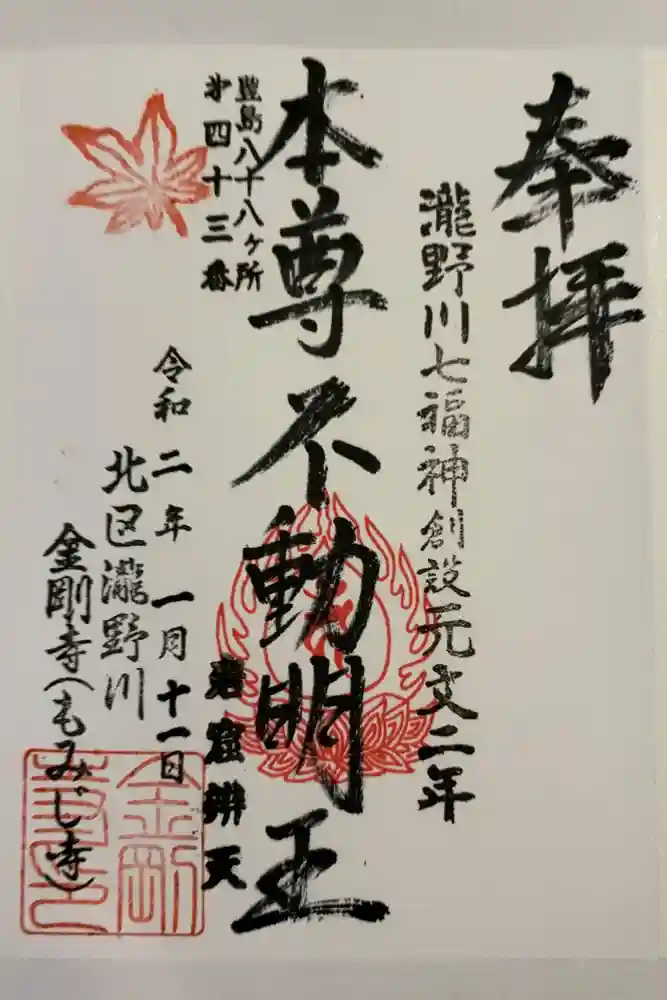 奉拝
瀧野川七福神創設元文二年
本尊不動明王
豊島八十八ヶ所
第四十三番
岩窟辨天
令和二年一月十一日
北区瀧野川
金剛寺(もみじ寺)
金剛
寺印